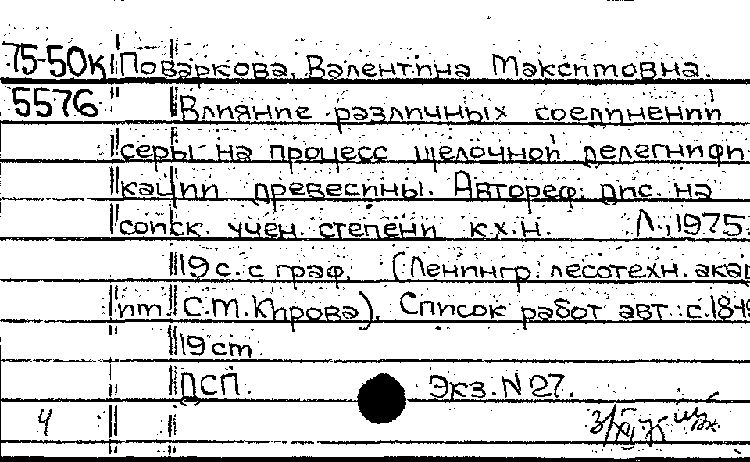 75-50к Поваркова, Валентина Максимовна.
5576 Влияние различных соединений
серы на процесс щелочной делегнифи
кации древесины. Автореф. дис. на
соиск. учен. степени к.х.н. Л., 1975.
19 с. с граф. (Ленингр. лесотехн. акад
им. С.М. Кирова). Список работ авт.: с. 18-19
19 ст
ДСП. Экз. N 27.
4 3/XII 75